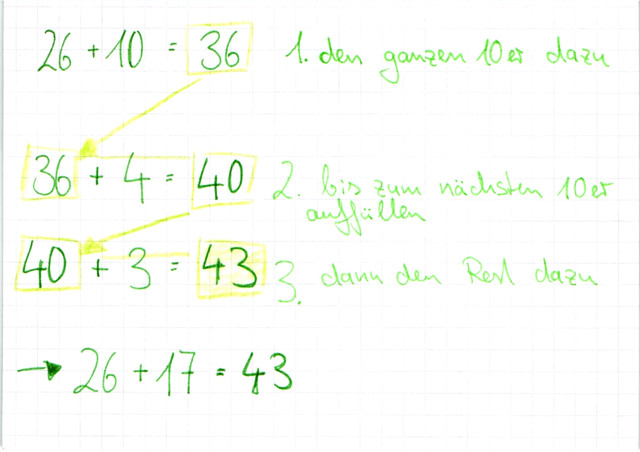 26 + 10 = 36 1. den ganzen 10er dazu
36 + 4 = 40 2. bis zum nächsten 10er
auffüllen
40 + 3 = 43 3. dann den Rest dazu
→ 26 + 17 = 43